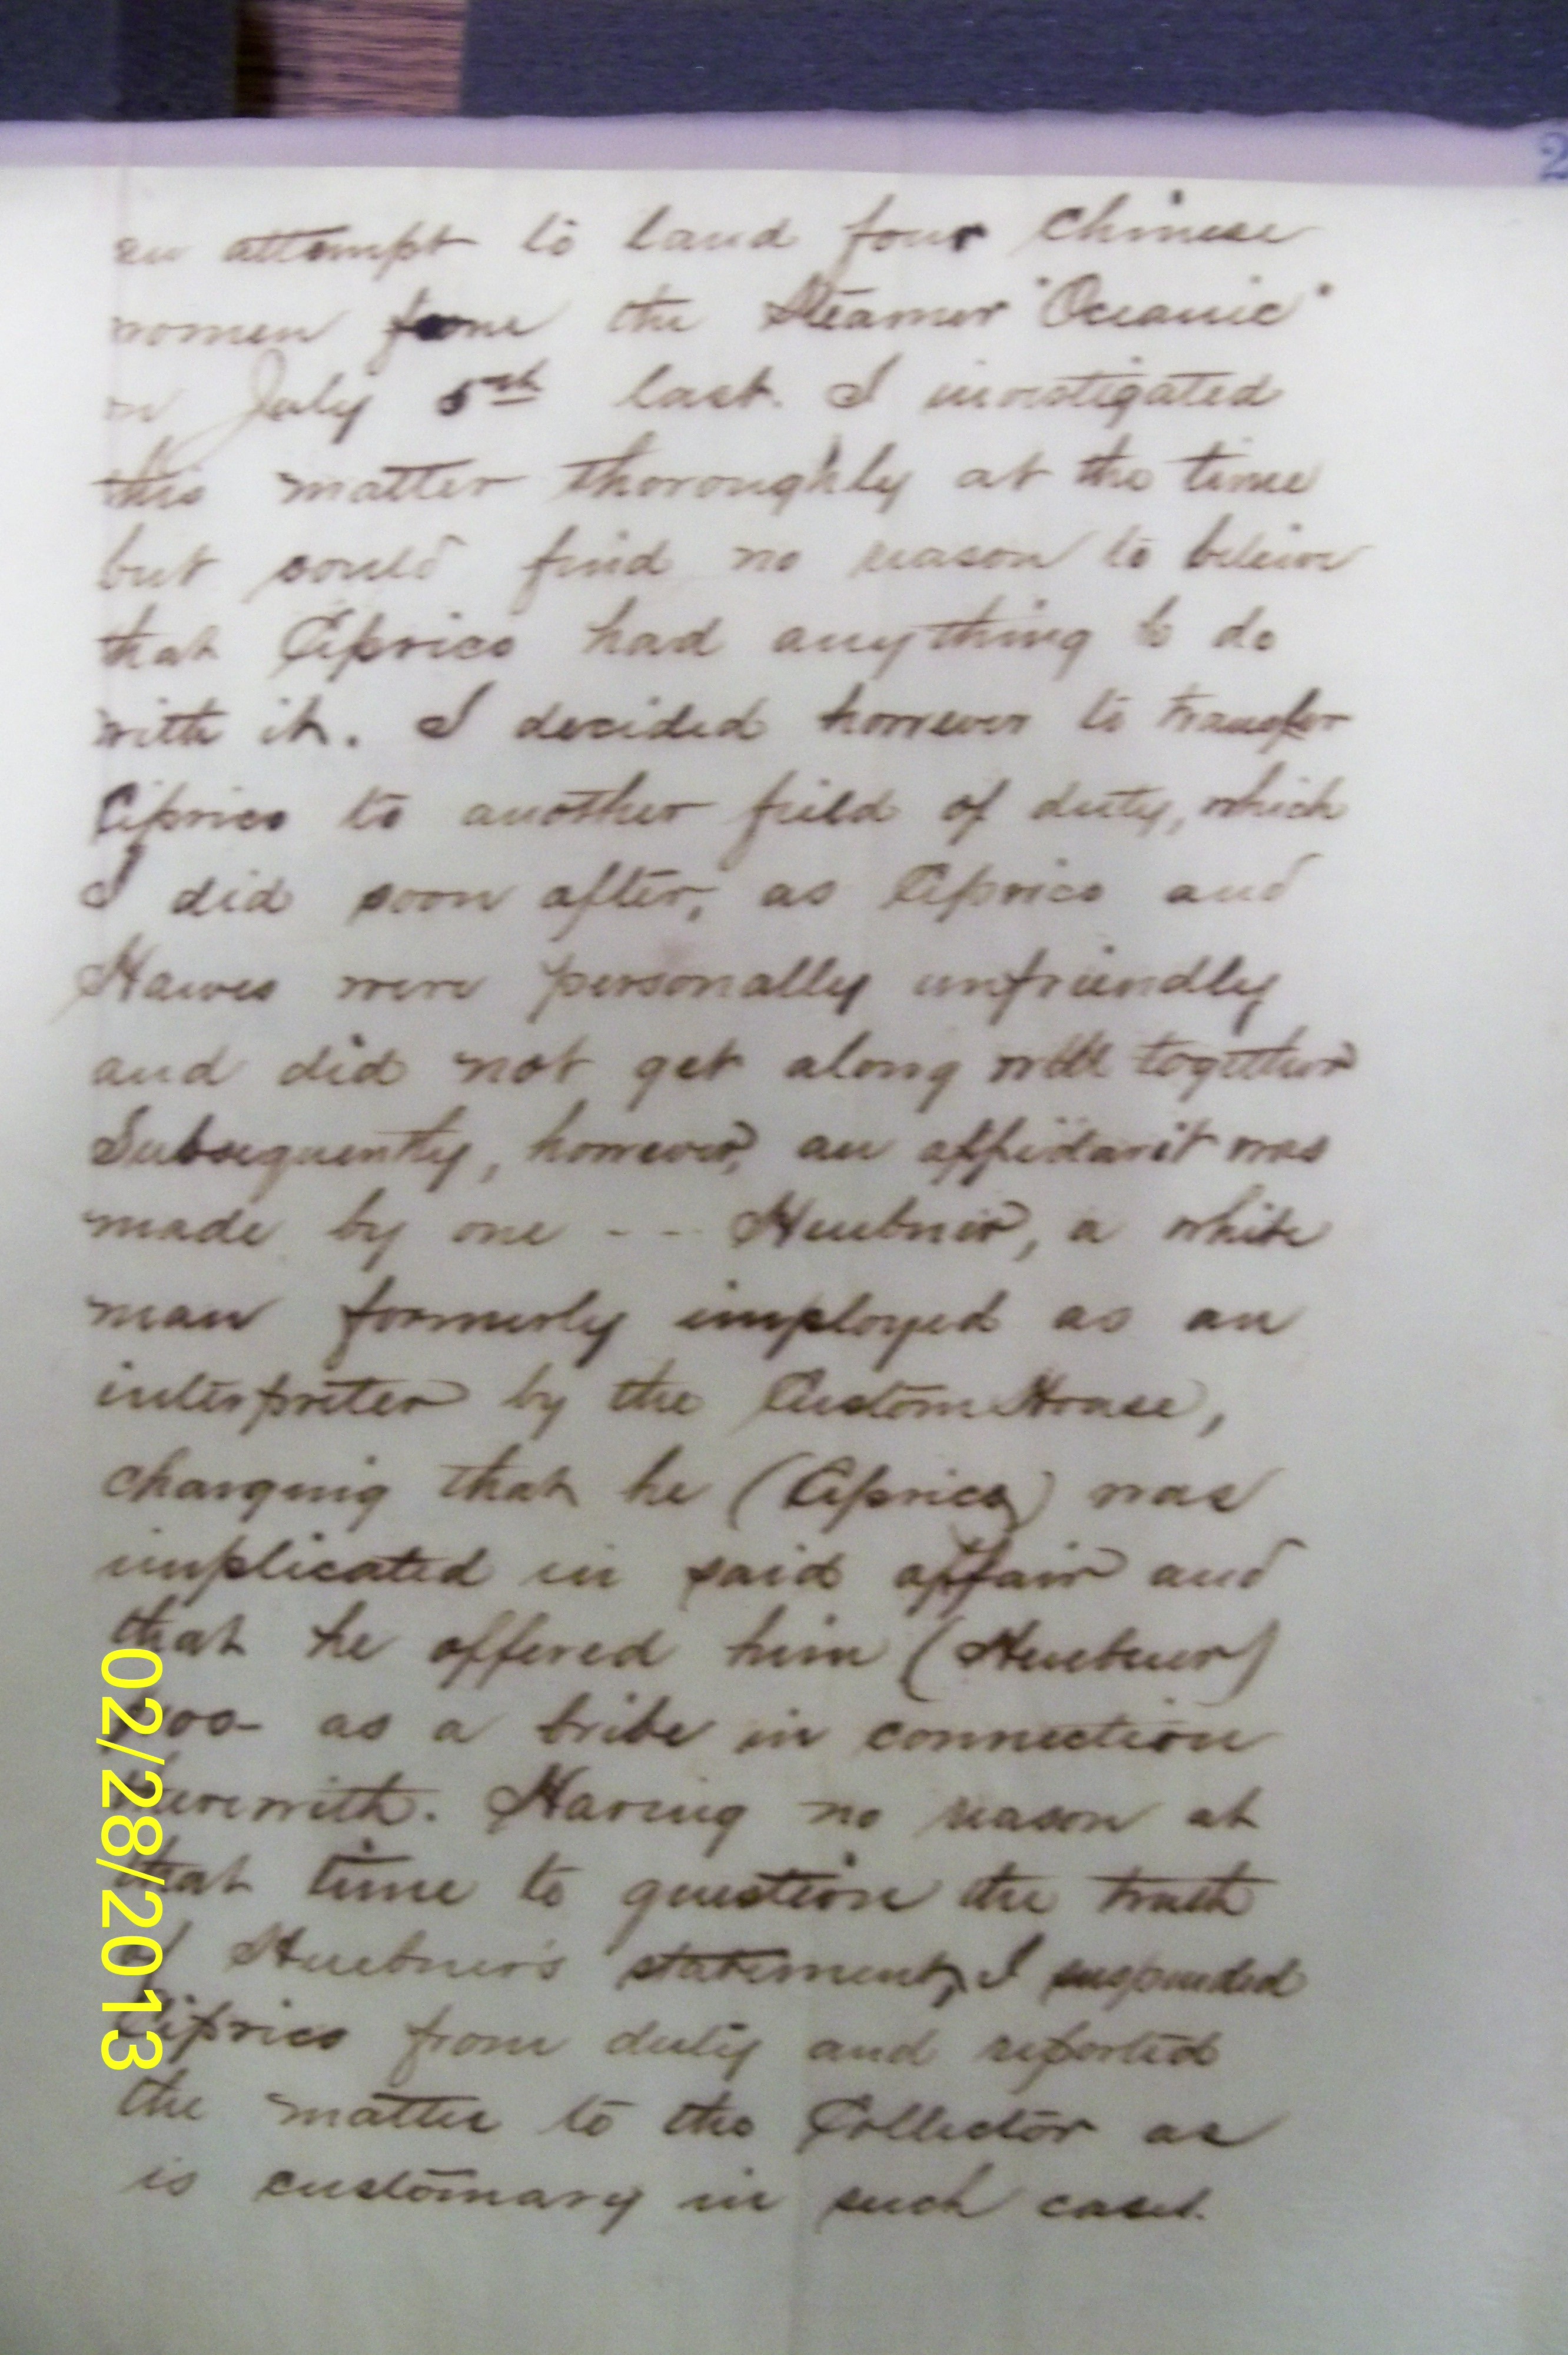 2
an attempt to land four Chinese
women from the Steamer "Oceanic"
on July 5th last. I investigated
this matter thoroughly at the time
but could find no reason to beleive
that Ciprico had anything to do
with it. I decided however to transfer
Ciprico to another field of duty, which
I did soon after, as Ciprico and
Hawes were personally unfriendly
and did not get along well together
Subsequently, however, an affidavit was
made by one --- Huebner, a white
man formerly employed as an
interpreter by the Custom House,
charging that he (Ciprico) was
implicated in said affair and
that he offered him (Huebner)
as a bribe in connection
therewith. Having no reason at
that time to question the truth
of Huebner's statement, I suspended
Ciprico from duty and reported
the matter to the Collector as
is customary in such cases.
02/28/2013